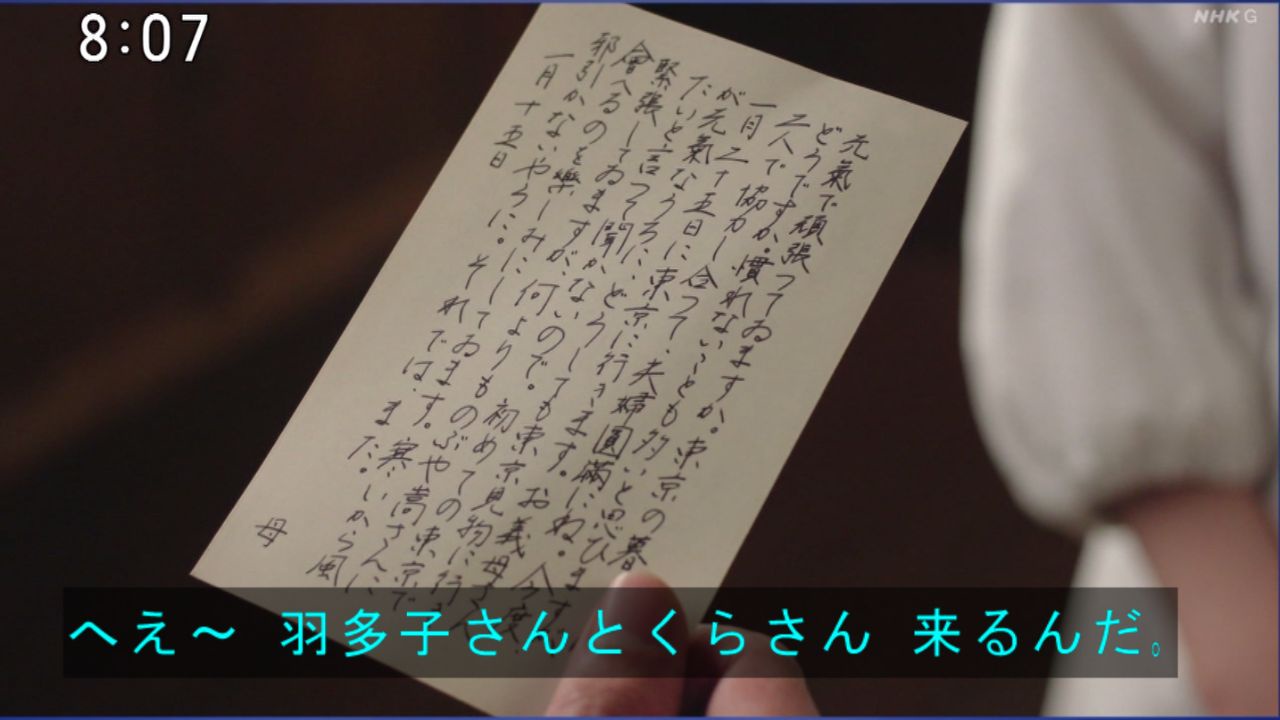 8:07
NHK G
元氣で頑張つてゐますか。東京の暮
どうですか。慣れないことも多いと思ひます
二人で協力し合つて、夫婦圓滿にね。今度
一月二十五日に東京に行きます。お義母さん
が元氣なうちに、どうしても東京見物に行
たいと言つて聞かないので。初めての東京で
緊張してゐますが、何よりものぶや嵩さんに
會へるのを樂しみにしてゐます。寒いから風
邪引かないやうに。それでは、また。
一月十五日
母
へえ~ 羽多子さんとくらさん 来るんだ。